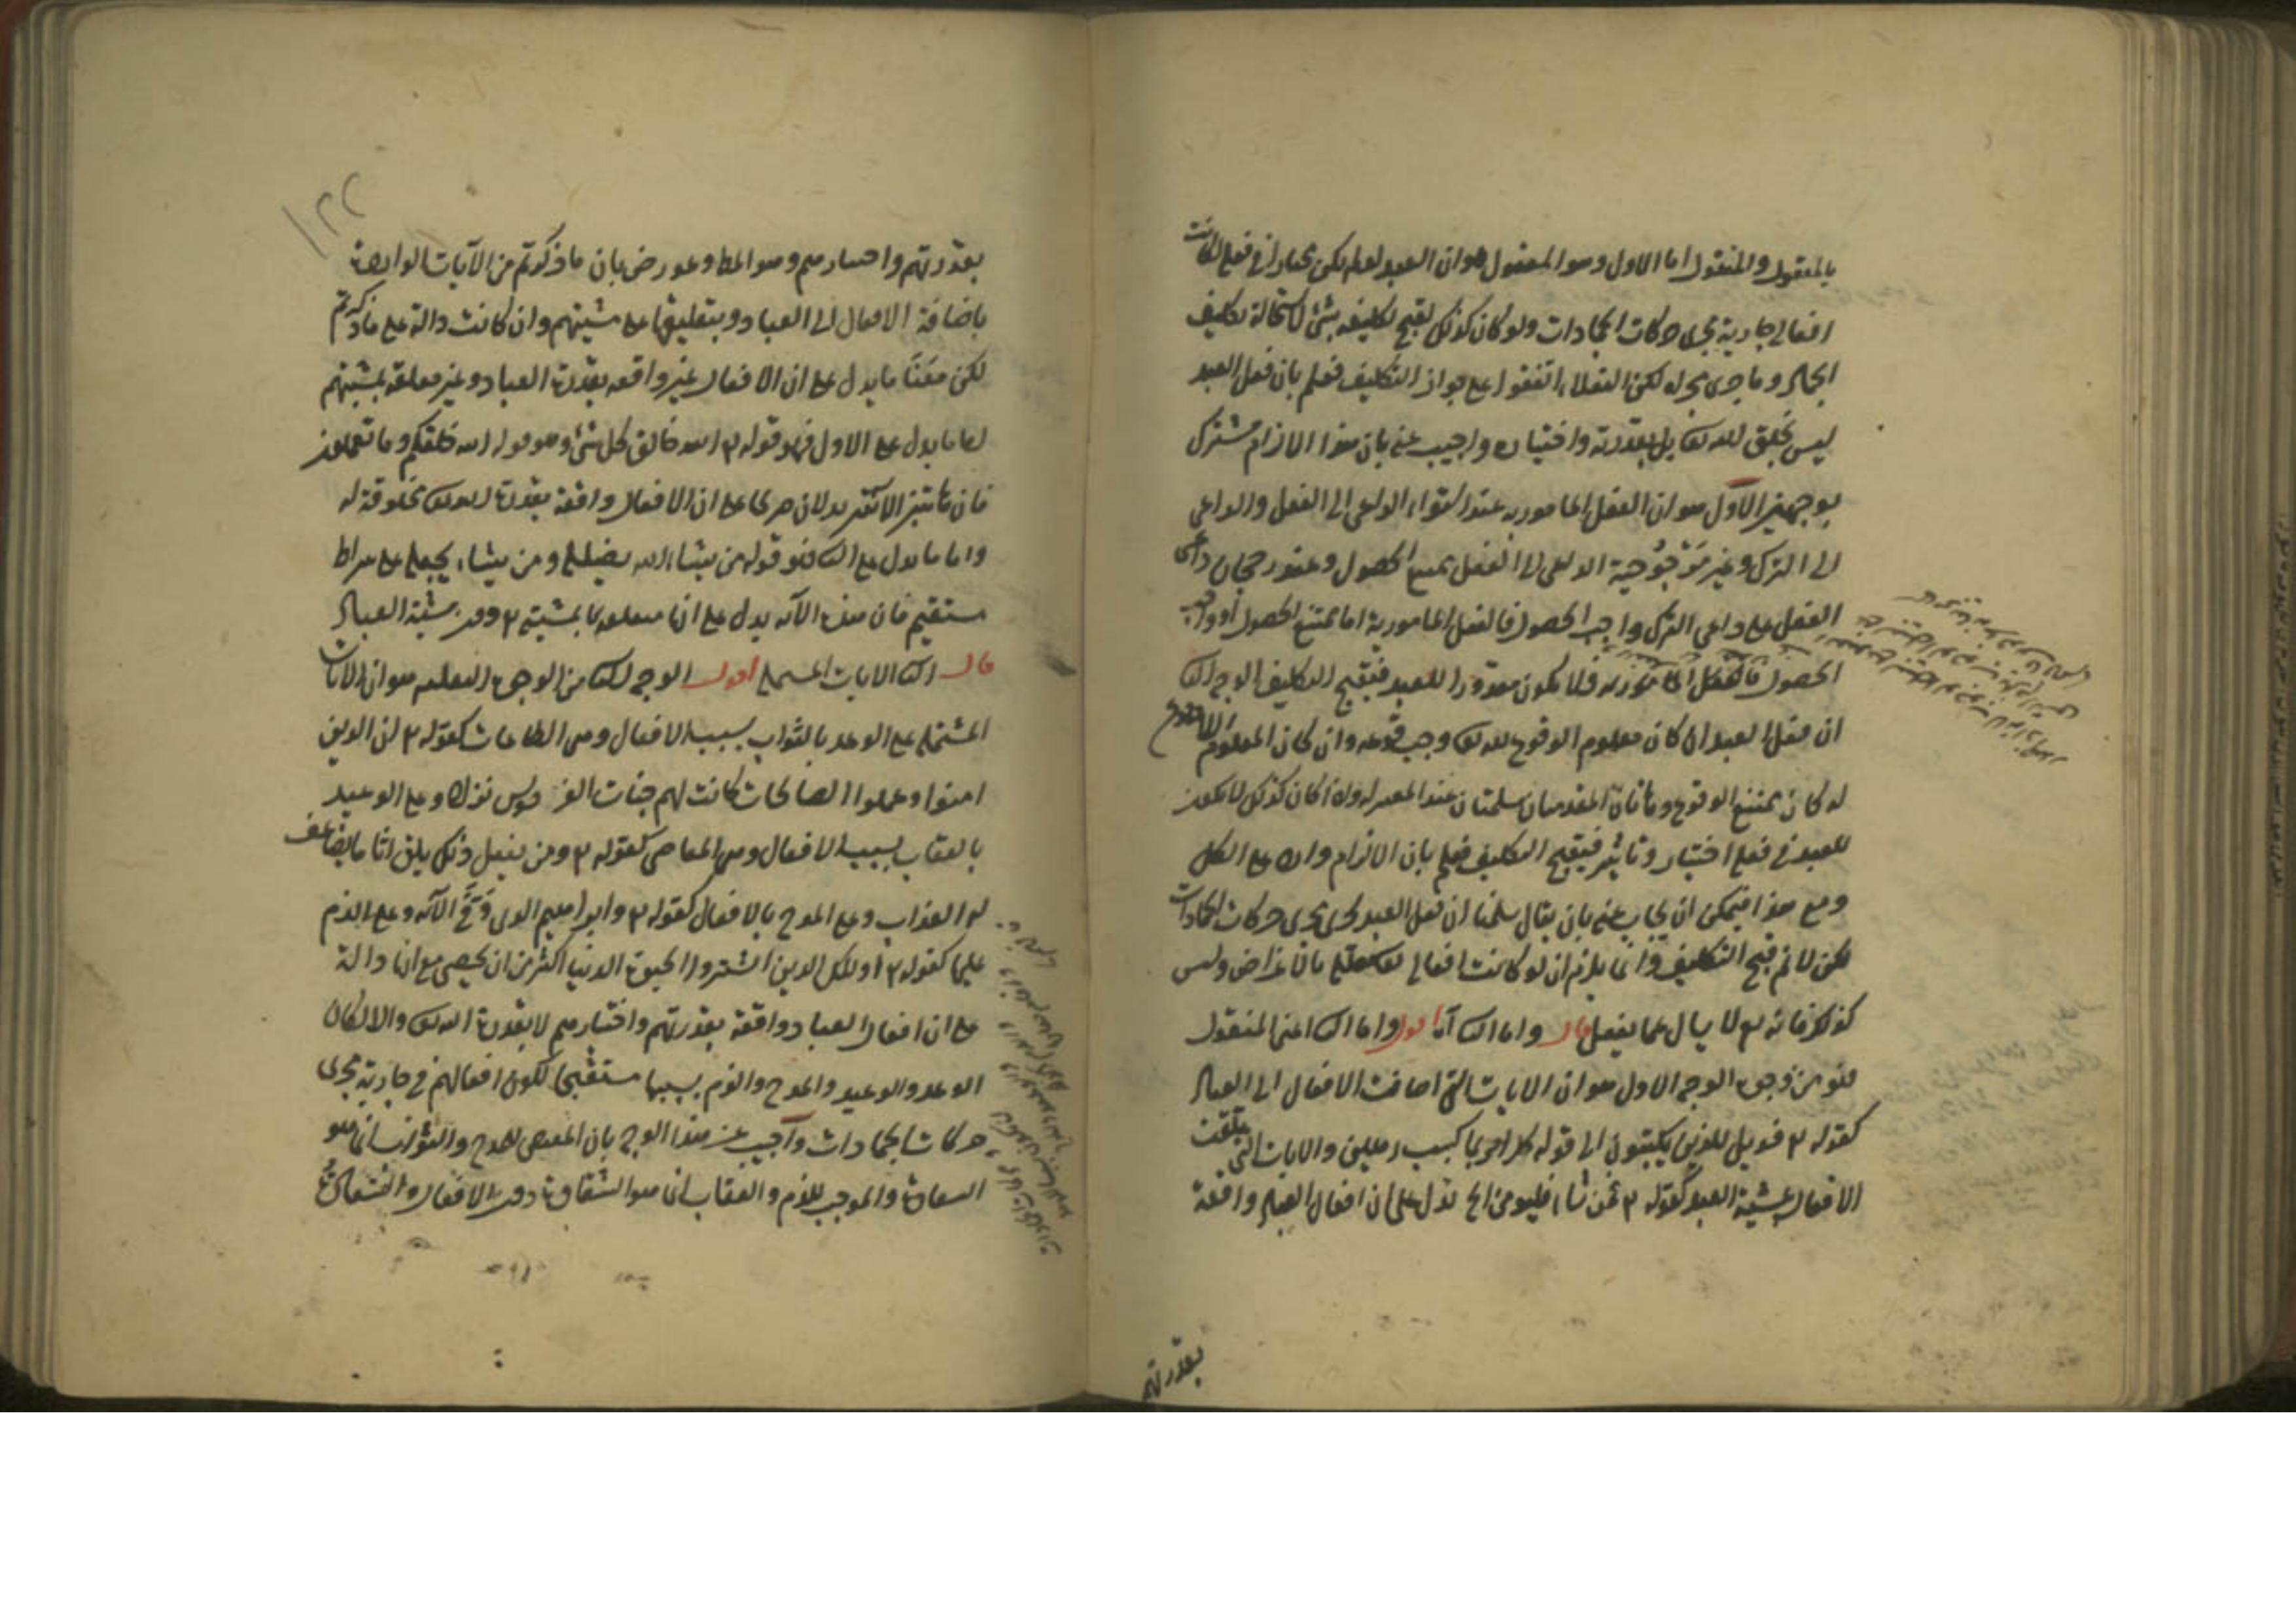 بالمعقول والمنقول اما الاول وهو المعقول هو ان العبد لو لم يكن مختارا في فعله لكانت
افعاله جارية مجرى حركات الجمادات ولو كان كذلك لقبح تكليفه بشئ لاستحالة تكليف
الجماد وما جرى مجراه لكن العقلاء اتفقوا على جواز التكليف فعلم بان فعل العبد
ليس بخلق الله تع بل بقدرته واختياره واجيب عنه بان هذا الالزام مشترك
بوجهين الاول هو ان الفعل المامور به عند استواء الداعى الى الفعل والداعى
الى الترك وعند مرجوحية الداعى الى الفعل يمتنع الحصول وعند رجحان داعى
الفعل على داعى الترك واجب الحصول فالفعل المامور به اما ممتنع الحصول او واجب
الحصول فالفعل المامور به فلا يكون مقدورا للعبد فيقبح التكليف الوجه الث
ان فعل العبد ان كان معلوم الوقوع لله تع وجب وقوعه وان كان المعلوم اللاوقوع
له كان ممتنع الوقوع وهاتان المقدمتان مسلمتان عند المعتزلة واذا كان كذلك لا يكون
للعبد في فعله اختيار وتاثير فيقبح التكليف فعلم بان الالزام وارد على الكل
ومع هذا فيمكن ان يجاب عنه بان يقال سلمنا ان فعل العبد يجرى مجرى حركات الجمادات
لكن لا نم قبح التكليف وانما يلزم ان لو كانت افعاله تع معللة بالاغراض وليس
كذلك فانه تع لا يسال عما يفعل قال واما الث آه اقول واما الث اعنى المنقول
فهو من وجوه الوجه الاول هو ان الايات التى اضافت الافعال الى العباد
كقوله ٢ فويل للذين يكتبون الى قوله كل امرئ بما كسب رهين والايات التى علقت
الافعال بمشية العبد كقوله ٢ فمن شاء فليؤمن الخ تدل على ان افعال العباد واقعة
بقدرتهم
١٢٢
بقدرتهم واختيارهم وهو المط وعورض بان ما ذكرتم من الآيات الواردة
باضافة الافعال الى العباد وبتعليقها على مشيتهم وان كانت دالة على ما ذكرتم
لكن معنا ما يدل على ان الافعال غير واقعه بقدرة العباد وغير معلقة بمشيتهم
اما ما يدل على الاول فهو قوله ٢ الله خالق كل شئ وهو قوله الله خلقكم وما تعملون
فان هاتين الآيتين يدلان صريحا على ان الافعال واقعة بقدرة الله تع مخلوقة له
واما ما يدل على الث فهو قوله من يشاء الله يضلله ومن يشاء يجعله على صراط
مستقيم فان هذه الآيه يدل على انها معلقة بمشيته ٢ دون مشية العباد
قال الث الايات المشتملة اقول الوجه الث من الوجوه النقلية هو ان الايات
المشتملة على الوعد بالثواب بسبب الافعال وهى الطاعات كقوله ٢ ان الذين
امنوا وعملوا الصالحات كانت لهم جنات الفردوس نزلا وعلى الوعيد
بالعقاب بسبب الافعال وهى المعاصى كقوله ٢ ومن يفعل ذلك يلق اثاما يضاعف
له العذاب وعلى المدح بالافعال كقوله ٢ وابراهيم الذى وَفَّى الآيه وعلى الذم
عليها كقوله ٢ اولئك الذين اشتروا الحيوة الدنيا اكثر من ان يحصى مع انها دالة
على ان افعال العباد واقعة بقدرتهم واختيارهم لا بقدرة الله تع والا لكان
الوعد والوعيد والمدح والذم بسببها مستقبحا لكون افعالهم جارية مجرى
حركات الجمادات وآجيب عن هذا الوجه بان المقتضى للمدح والثواب انما هو
السعادة والموجب للذم والعقاب انما هو الشقاوة دون الافعال والسعادة